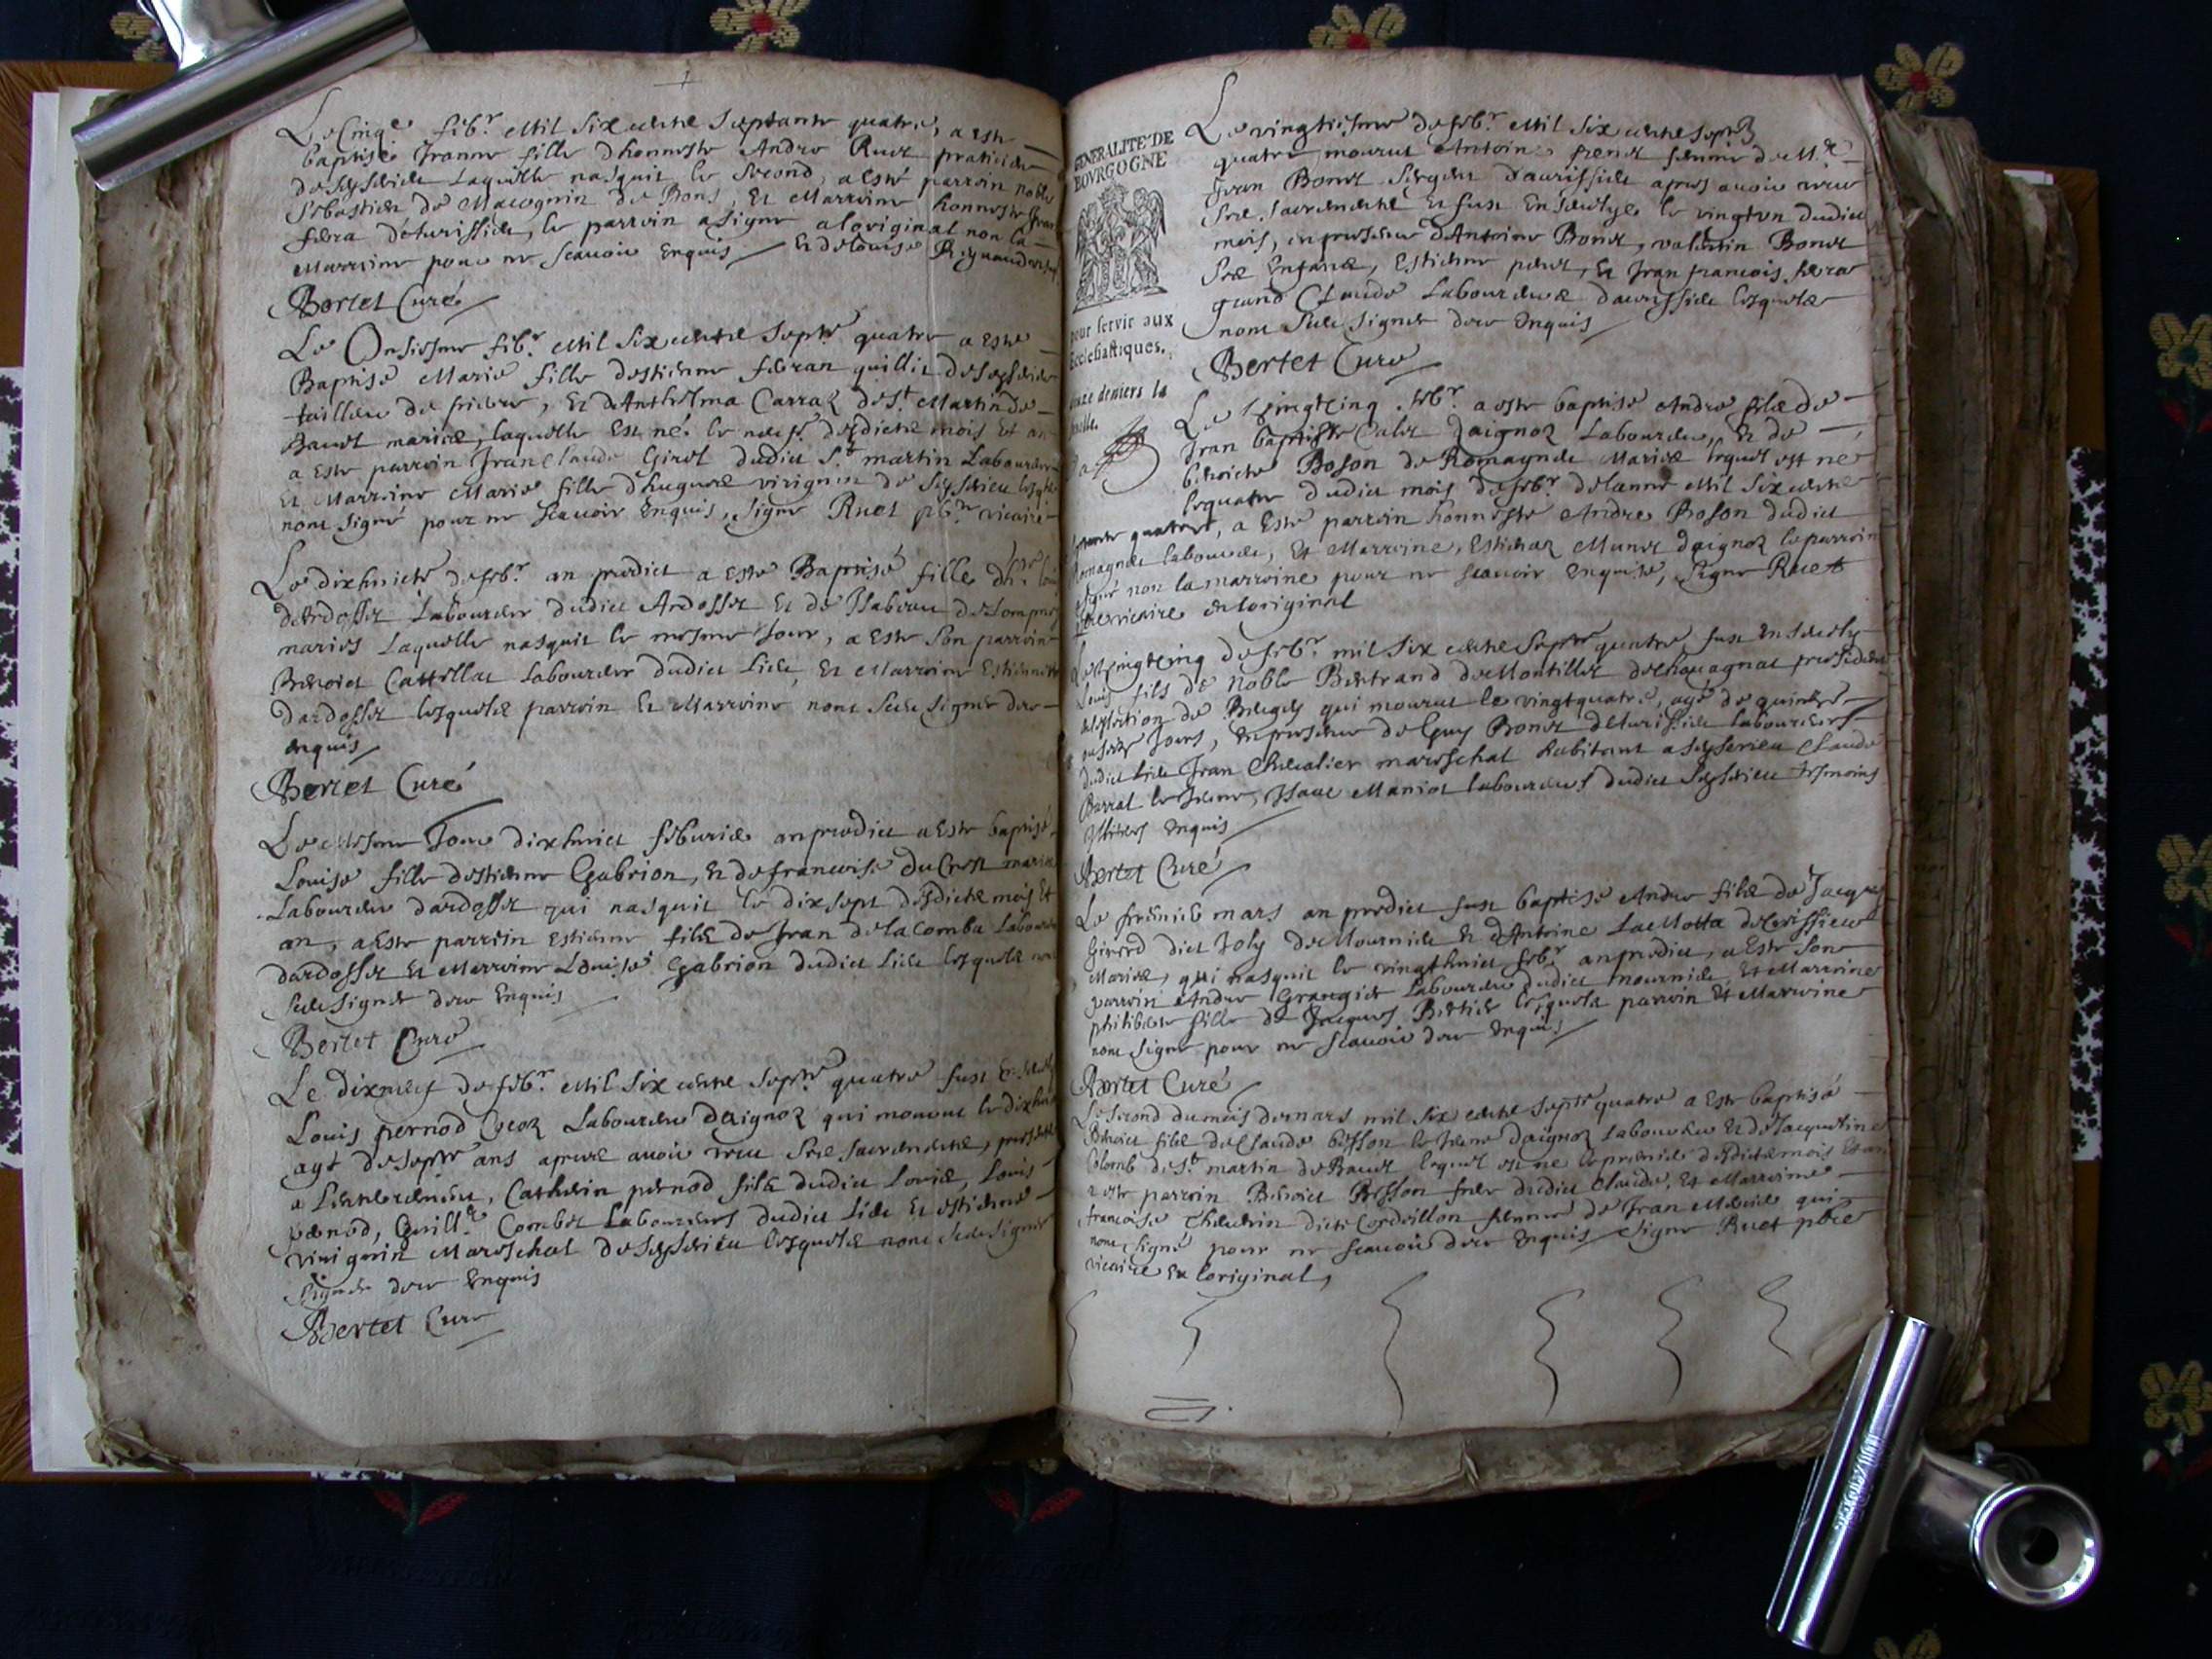 Le Cinqe febr. Mil Six cents Septante quatre, a este
baptisée Jeanne fille dhonneste Andre Ruet praticien
de Seysserieu Laquelle nasquit le second, a esté parroin noble
Sebastien de Macognin de Bons, Et Marroine honneste
le parroin a signe a loriginal non la
Marroine pour ne scavoir Enquis Et de Louise
Bertet Curé
Le Onsiesme febr. Mil Six cents Septte quatre a este
Baptisé Marie fille destienne quillit de Seysserieu
, Et de Anthelma Carraz de St. Martin de
Bavet mariés, laquelle est née le desdicts mois Et an
a Este parroin Jean Claude Girel dudict St. martin Laboureur
Et Marroine Marie fille dhugues virignin de Seysserieu
nont signé pour ne scavoir Enquis, signe Ruet pbre vicaire
Le dixhuicte de febr. an predict a Este Baptisé fille
dArdosset Laboureur dudict Ardosset Et de Isabeau
mariés Laquelle nasquit le mesme Jour, a Este son parroin
Benoict Castillat Laboureur dudict Lieu, Et Marroine Estiennette
dardosset lesquels parroin Et Marroine nont sceu signer de ce
enquis
Bertet Curé
Le Mesme Jour dixhuict febvrier an predict a Este baptisé
Louise fille destienne Gabrion, Et de francoise du Crest mariés
Laboureur dardosset qui nasquit le dixsept desdicts mois Et
an, a Este parroin Estienne fils de Jean de la Comba Laboureur
dardosset Et Marroine Louise Gabrion dudict Lieu lesquels nont
sceu signer de ce Enquis
Bertet Curé
Le dixneuf de febr. Mil Six cents Septte quatre fust
Louis pernod Laboureur daignoz qui mourut le dixhuict
agé de Septte ans apres avoir receu ses sacrements, presents
a Lenterrement, Cathelin pernod fils dudict Louis, Louis
pernod, Guille Combet Laboureurs dudict Lieu Et Estienne
virignin Mareschal de Seysserieu lesquels nont sceu signer
signer de ce Enquis
Bertet Curé
GENERALITÉ DE
BOVRGOGNE
pour servir aux
Ecclesiastiques.
deniers la
Le vingtiesme de febr. Mil Six cents Septte
quatre mourut Antoine femme de Me
Jean Bonet Sergent apres avoir receu
ses sacrements Et fust Ensevelye le vingtun dudict
mois, en presence dAntoine Bonet, valentin Bonet
ses Enfans, Estienne Et Jean francois
grand Claude Laboureurs lesquels
nont sceu signer de ce Enquis
Bertet Curé
Le vingtcinq febr. a este baptisé Andre fils de
Jean baptiste Calet daignoz Laboureur, Et de
benoicte Boson de Romagnieu Mariés lequel est né
le quatre dudict mois de febr. de lanne Mil Six cents
quatre, a Este parroin honneste Andre Boson dudict
Romagnieu laboureur, Et Marroine, Estiennaz Munet daignoz le parroin
signé non la marroine pour ne scavoir Enquise, signe Ruet
vicaire en loriginal
Le vingtcinq de febr. mil Six cents Septte quatre fust Ensevely
Louis fils de Noble Bertrand de Montillet de president
de lelection de Belley qui mourut le vingtquatre, agé de quinze
ou seize Jours, en presence de Guy Bonet laboureur
dudict lieu Jean Chevalier mareschal habitant a Seysserieu Claude
Barral le Jeune, Isaac Maniot laboureur dudict Seysserieu tesmoins
Illiteres enquis
Bertet Curé
Le premier mars an predict fust baptisé Andre fils de Jacques
Girerd dict Joly de Mournieu Et dAntoine La Motta
Mariés, qui nasquit le vingthuict febr. an predict, a Este son
parroin Andre Grangier Laboureur dudict mournieu, Et Marroine
philiberte fille de Jacques Bertier lesquels parroin Et Marroine
nont signe pour ne scavoir de ce Enquis
Bertet Curé
Le second du mois de mars mil Six cents Septte quatre a Este baptisé
Benoict fils de Claude bosson le Jeune daignoz Laboureur Et de Jacquetine
Colomb de St. martin de Bavet lequel est né le premier desdicts mois Et an
a este parroin Benoict Bosson frere dudict Claude, Et Marroine
francoise dicte Cordeillon femme de Jean qui
nont signé pour ne scavoir de ce Enquis signe Ruet pbre
vicaire En loriginal,